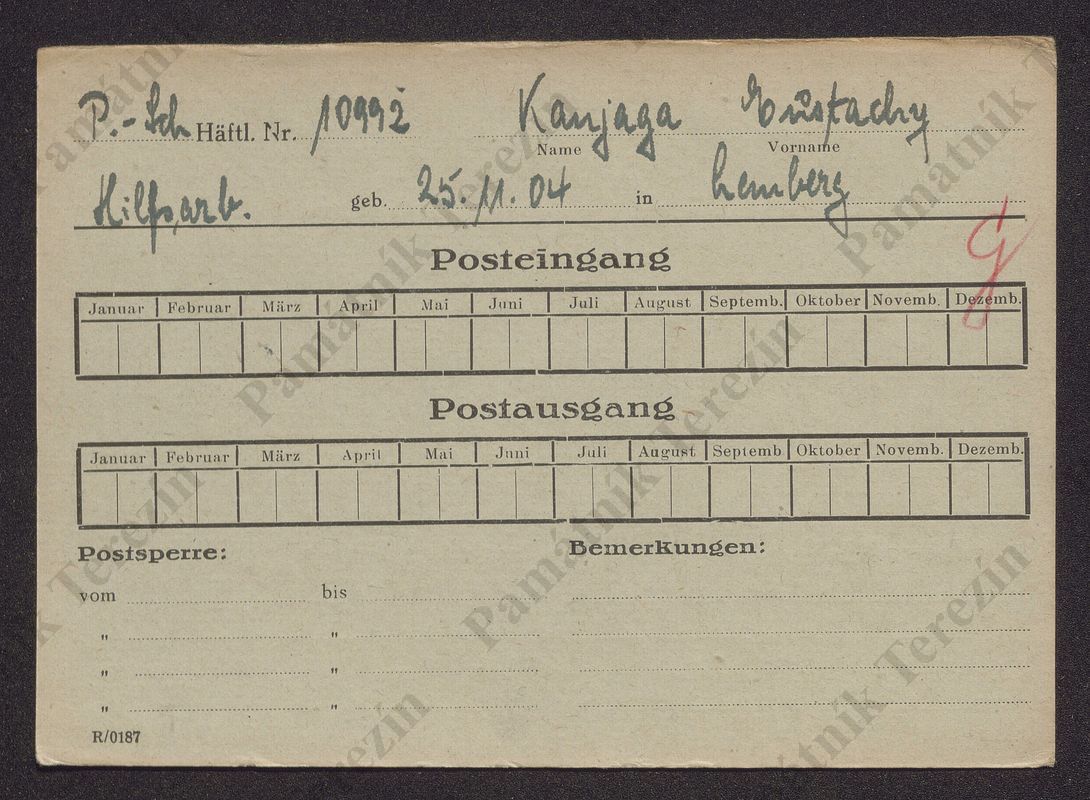 P.-Sch Häftl. Nr. 10992 Kanjaga Eustachy
Name Vorname
Hilfsarb. geb. 25. 11. 04 in Lemberg
Posteingang
Januar Februar März April Mai Juni Juli August Septemb. Oktober Novemb. Dezemb.
Postausgang
Januar Februar März April Mai Juni Juli August Septemb Oktober Novemb. Dezemb.
Postsperre: Bemerkungen:
vom bis
" "
" "
" "
R/0187
Památník Terezín